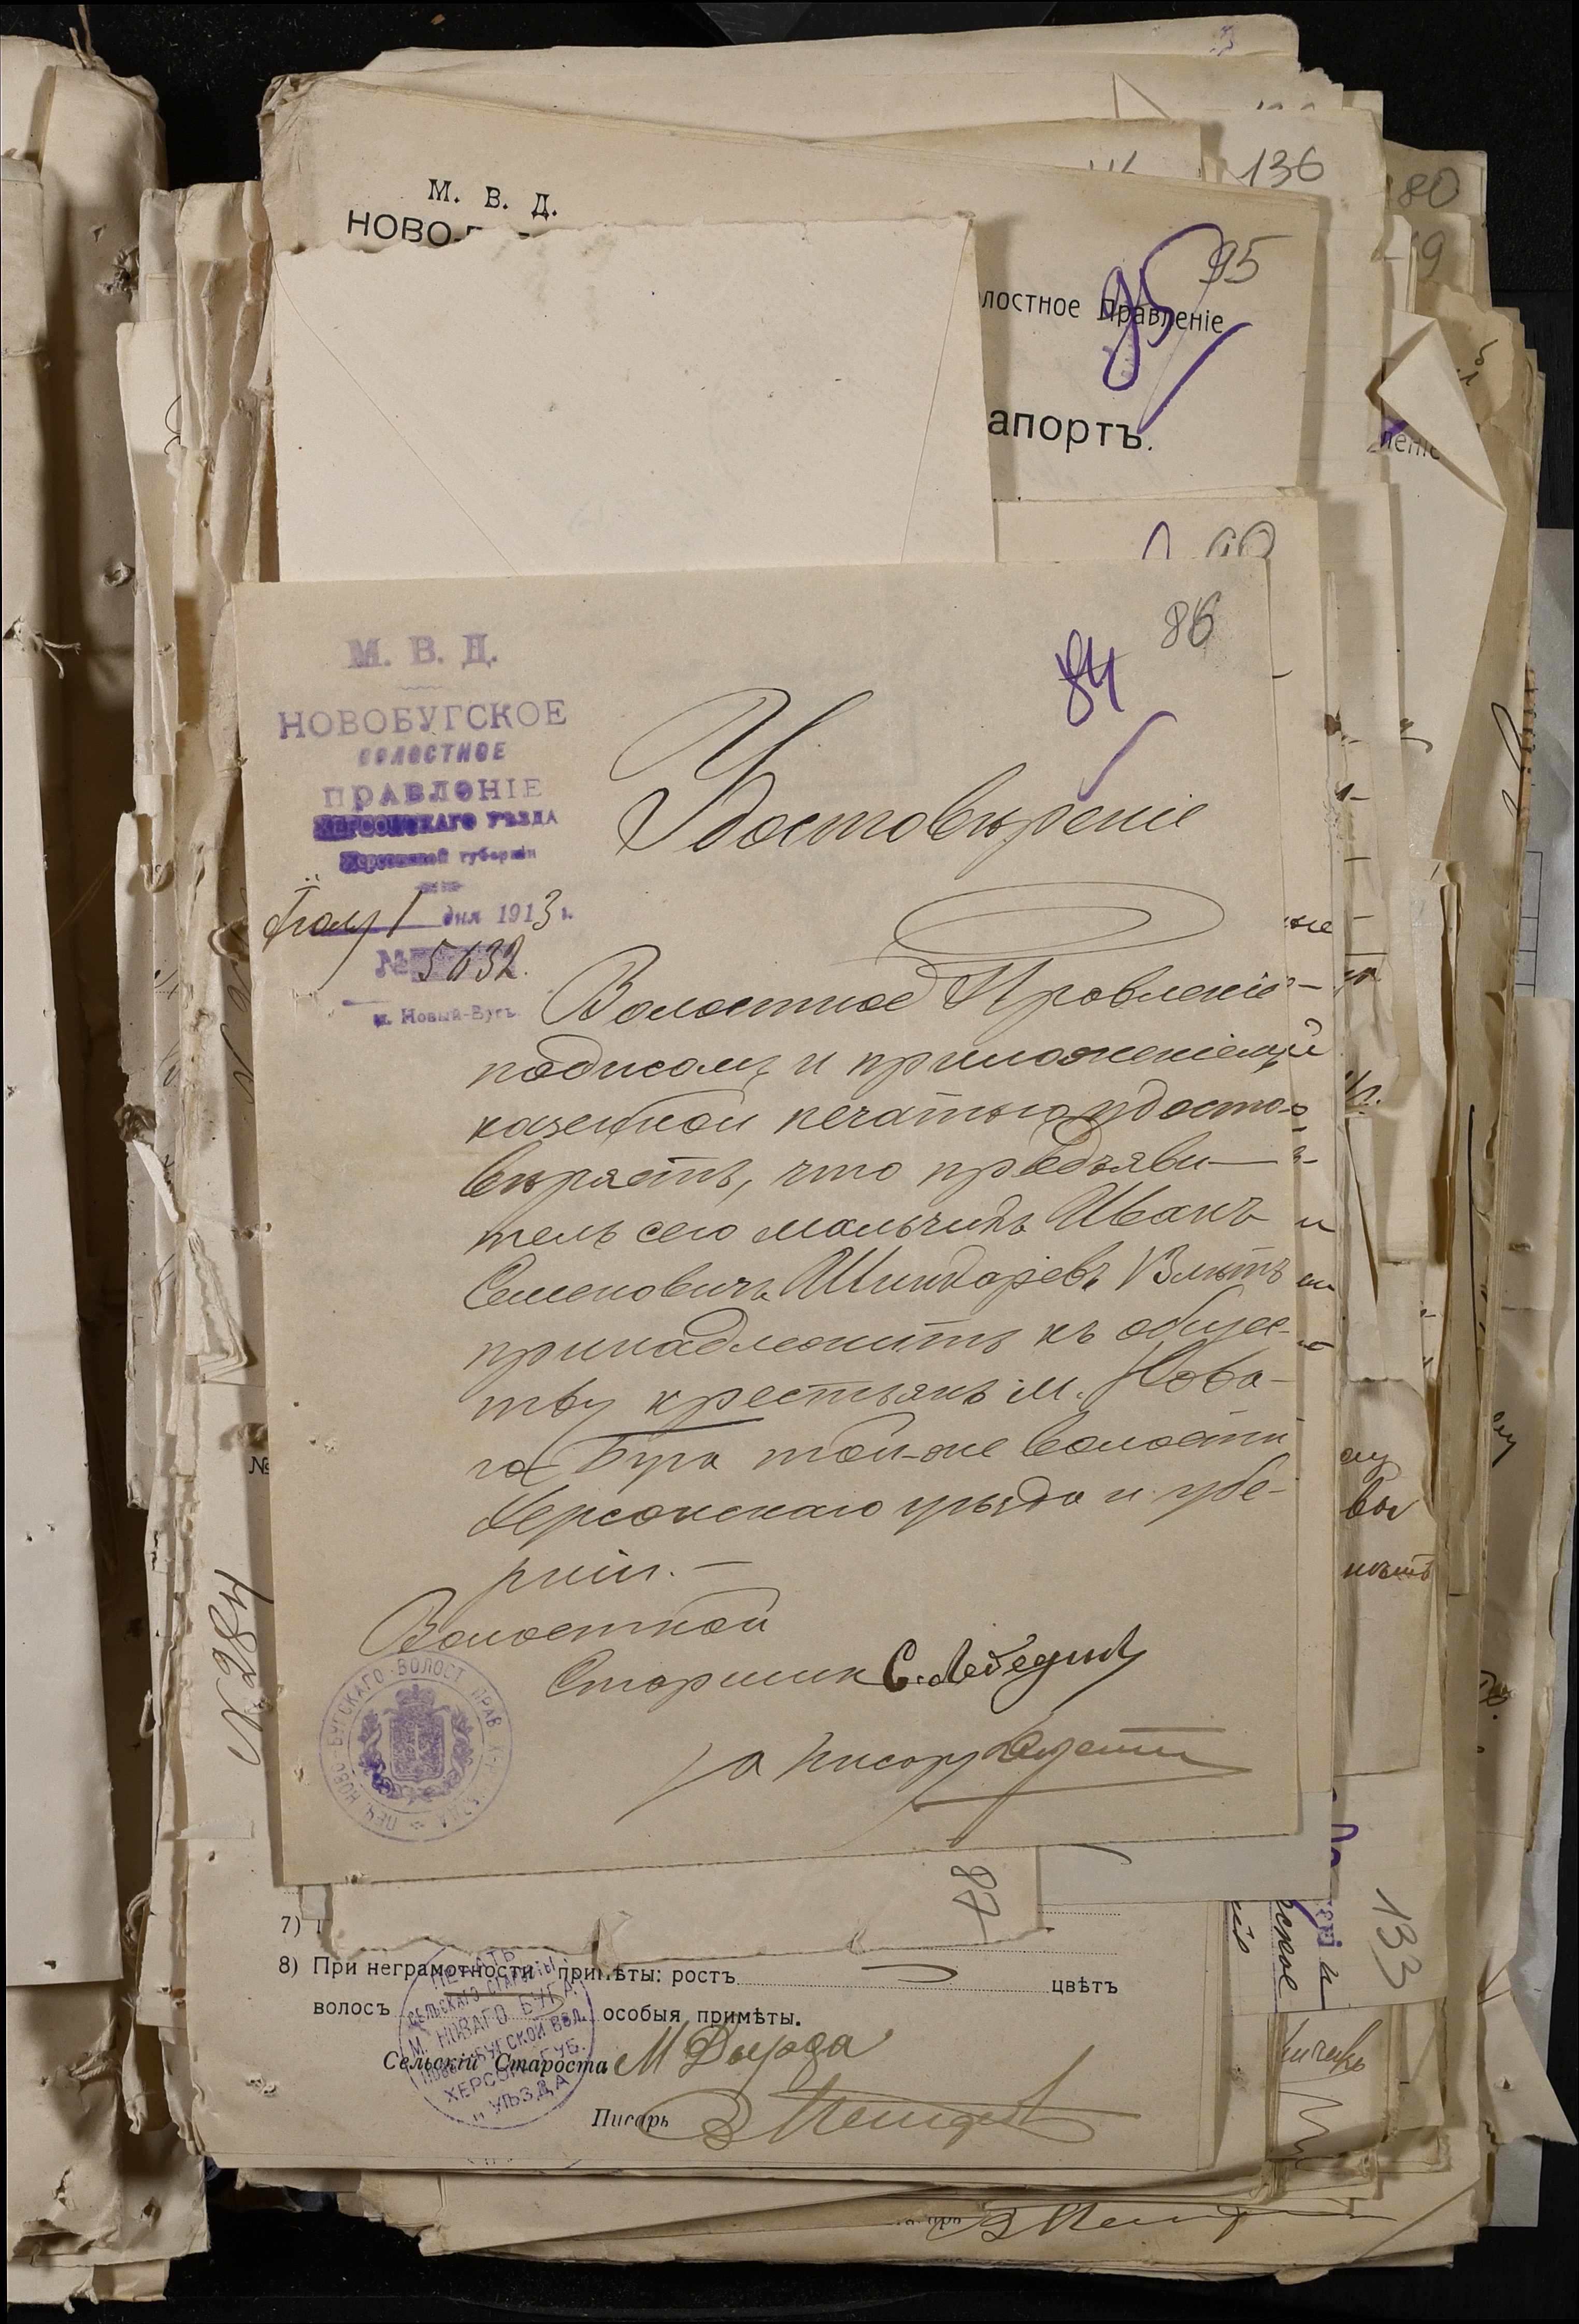 136
80
9
М. В. Д.
НОВО-
95
95
лостное Правленіе
апортъ.
леніе
86
84
М. В. Д.
НОВОБУГСКОЕ
ВОЛОСТНОЕ
ПРАВЛЕНІЕ
ХЕРСОНСКАГО УѢЗДА
Херсонской губерніи
Іюля 1 дня 1913 г.
№ 5632.
м. Новый-Бугъ
Удостовѣреніе
Волостное Правленіе
подписомъ и приложеніемъ
казенной печати удосто-
вѣряетъ, что предъяви-
тель сего мальчикъ Иванъ
Семеновичъ Шиндаревъ 13 лѣтъ
принадлежитъ къ общес-
тву крестьянъ м. Нова-
го Буга той-же волости
Херсонскаго уѣзда и губе-
рніи.-
Волостной
Старшина С. Лебединъ
За писаря
ПЕЧ. НОВО-БУГСКАГО ВОЛОСТ. ПРАВ. УѢЗДА
№ 284
87
133
7)
8) При неграмотности примѣты: ростъ цвѣтъ
волосъ особыя примѣты.
ПЕЧАТЬ
СЕЛЬСКАГО СТАРОСТЫ
М. НОВАГО БУГА
НОВО-БУГСКОЙ ВОЛ.
ХЕРСОН. ГУБ.
и УѢЗДА
Сельскій Староста М Дырда
Писарь